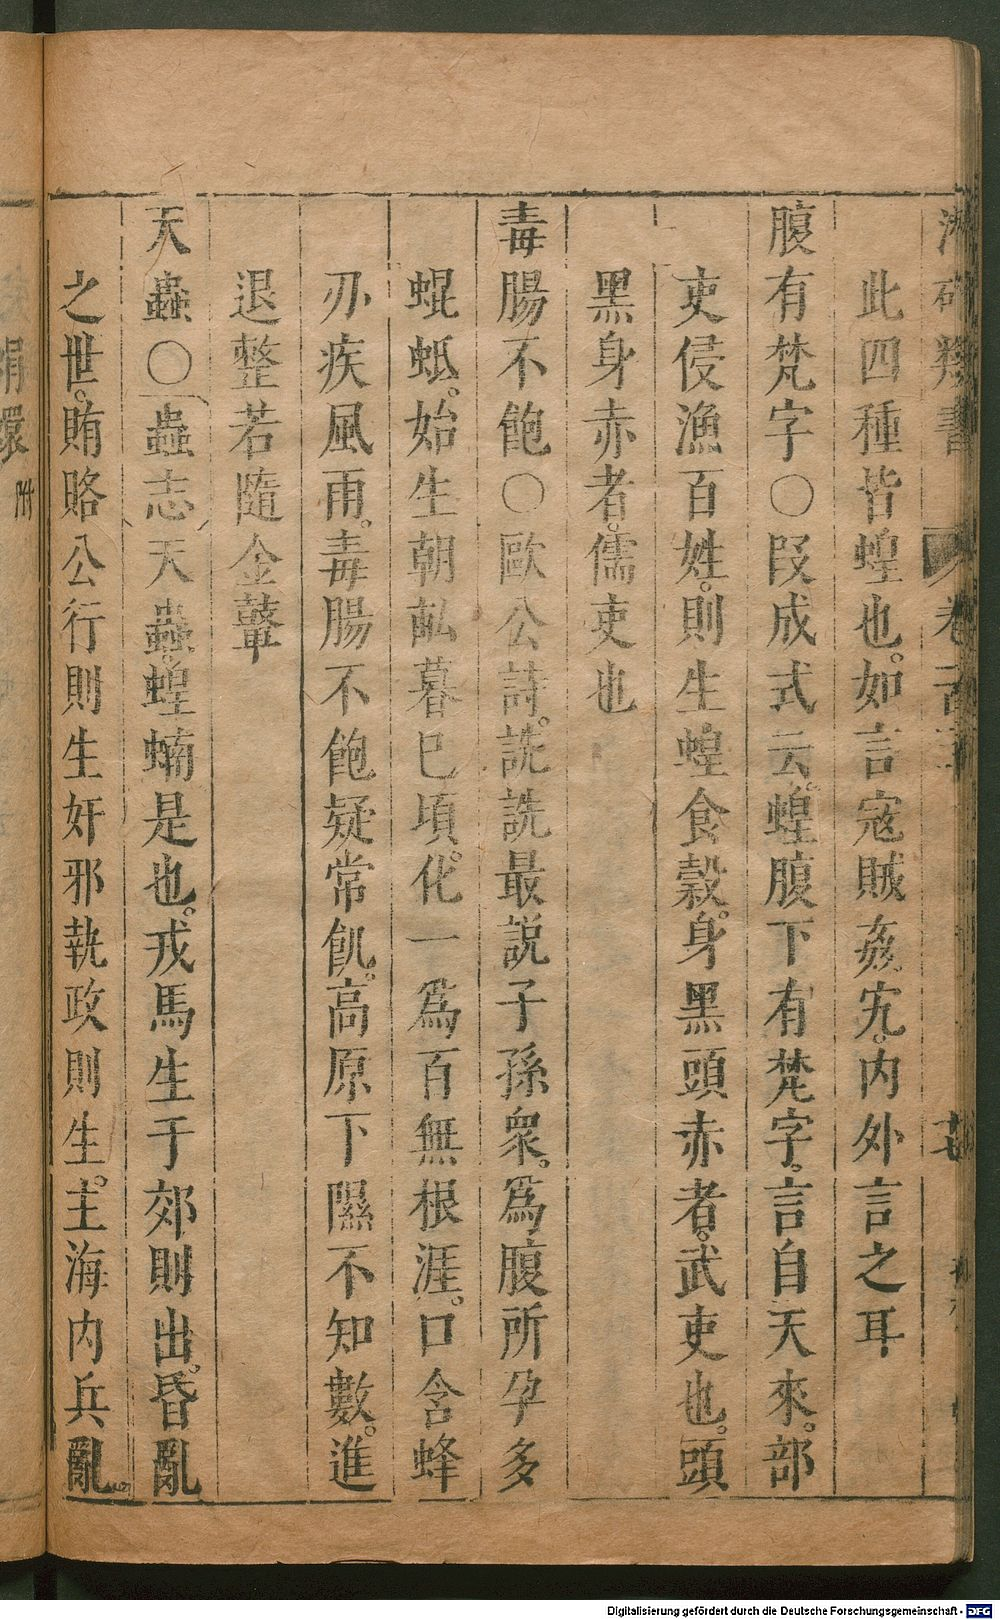 此四種皆蝗也。如言宼賊姦宄。内外言之耳
腹有梵字〇叚成式云。蝗腹下有梵字。言自天來。部
吏侵漁百姓。則生蝗食糓。身黑頭赤者。武吏也。頭
黑身赤者。儒吏也
毒腸不飽〇歐公詩。詵詵最説子孫衆。為腹所孕多
蜫蚳。始生朝畝暮已頃。化一為百無根涯。口含蜂
刃疾風雨。毒腸不飽疑常飢。高原下隰不知數。進
退整若隨金鼙
天蟲〇蟲志天蟲。蝗蝻是也。戎馬生于郊則出。昏亂
之世。賄賂公行則生奸邪執政則生。主海内兵亂
附
Digitalisierung gefördert durch die Deutsche Forschungsgemeinschaft - DFG